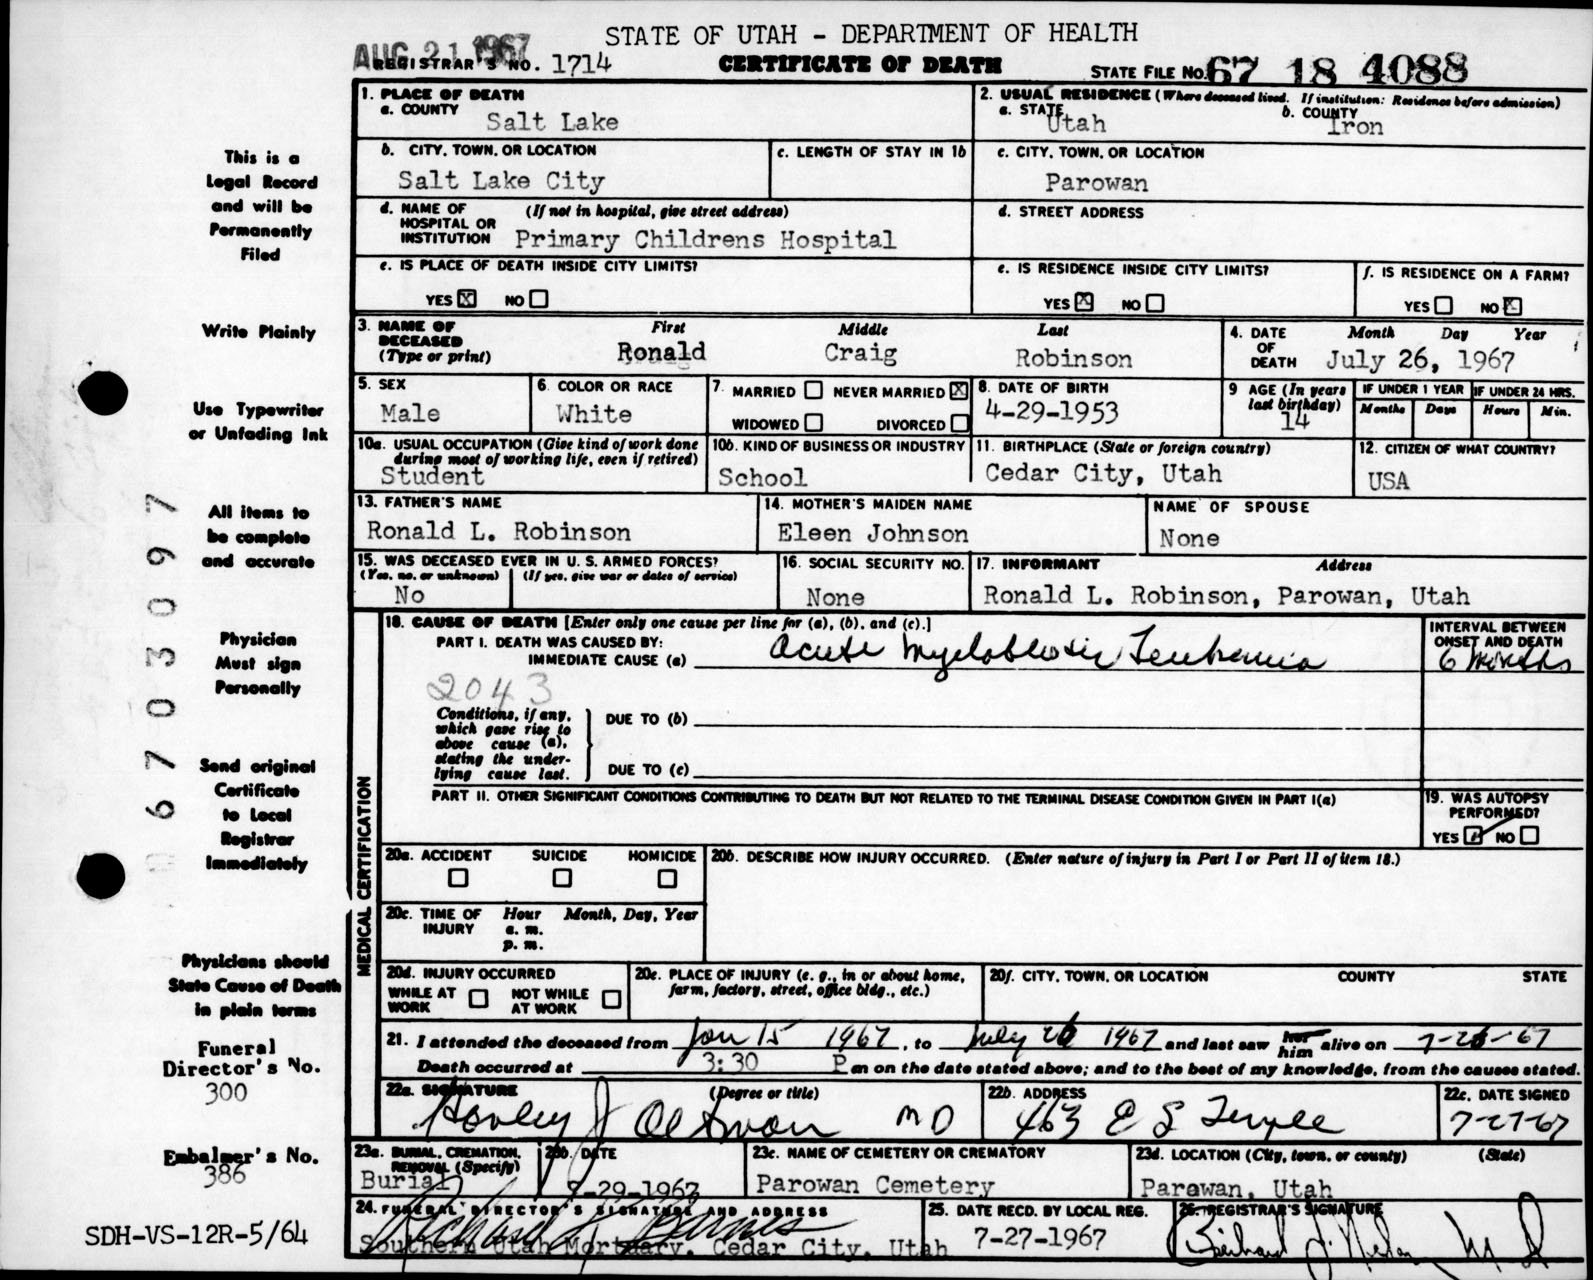 STATE OF UTAH - DEPARTMENT OF HEALTH
AUG 21 1967
REGISTRAR'S NO. 1714
CERTIFICATE OF DEATH
STATE FILE NO. 67 18 4088
1. PLACE OF DEATH
a. COUNTY
Salt Lake
2. USUAL RESIDENCE (Where deceased lived. If institution: Residence before admission)
a. STATE
Utah
b. COUNTY
Iron
b. CITY, TOWN, OR LOCATION
Salt Lake City
c. LENGTH OF STAY IN 1b
c. CITY, TOWN, OR LOCATION
Parowan
d. NAME OF (If not in hospital, give street address)
HOSPITAL OR
INSTITUTION Primary Childrens Hospital
d. STREET ADDRESS
e. IS PLACE OF DEATH INSIDE CITY LIMITS?
YES X NO
e. IS RESIDENCE INSIDE CITY LIMITS?
YES X NO
f. IS RESIDENCE ON A FARM?
YES NO X
3. NAME OF DECEASED (Type or print)
First Middle Last
Ronald Craig Robinson
4. DATE OF DEATH
Month Day Year
July 26, 1967
5. SEX
Male
6. COLOR OR RACE
White
7. MARRIED NEVER MARRIED X
WIDOWED DIVORCED
8. DATE OF BIRTH
4-29-1953
9 AGE (In years last birthday)
14
IF UNDER 1 YEAR
Months Days
IF UNDER 24 HRS.
Hours Min.
10a. USUAL OCCUPATION (Give kind of work done
during most of working life, even if retired)
Student
10b. KIND OF BUSINESS OR INDUSTRY
School
11. BIRTHPLACE (State or foreign country)
Cedar City, Utah
12. CITIZEN OF WHAT COUNTRY?
USA
13. FATHER'S NAME
Ronald L. Robinson
14. MOTHER'S MAIDEN NAME
Eleen Johnson
NAME OF SPOUSE
None
15. WAS DECEASED EVER IN U. S. ARMED FORCES?
(Yes, no, or unknown) (If yes, give war or dates of service)
No
16. SOCIAL SECURITY NO.
None
17. INFORMANT Address
Ronald L. Robinson, Parowan, Utah
MEDICAL CERTIFICATION
18. CAUSE OF DEATH [Enter only one cause per line for (a), (b), and (c).]
PART I. DEATH WAS CAUSED BY:
IMMEDIATE CAUSE (a) Acute Myeloblastic Leukemia
INTERVAL BETWEEN
ONSET AND DEATH
6 Months
2043
Conditions, if any,
which gave rise to
above cause (a),
stating the under-
lying cause last.
DUE TO (b)
DUE TO (c)
PART II. OTHER SIGNIFICANT CONDITIONS CONTRIBUTING TO DEATH BUT NOT RELATED TO THE TERMINAL DISEASE CONDITION GIVEN IN PART I(a)
19. WAS AUTOPSY
PERFORMED?
YES NO
20a. ACCIDENT SUICIDE HOMICIDE
20b. DESCRIBE HOW INJURY OCCURRED. (Enter nature of injury in Part I or Part II of item 18.)
20c. TIME OF INJURY
Hour Month, Day, Year
a. m.
p. m.
20d. INJURY OCCURRED
WHILE AT WORK NOT WHILE AT WORK
20e. PLACE OF INJURY (e. g., in or about home,
farm, factory, street, office bldg., etc.)
20f. CITY, TOWN, OR LOCATION COUNTY STATE
21. I attended the deceased from Jan 15 1967, to July 26 1967 and last saw her him alive on 7-26-67
Death occurred at 3:30 P m on the date stated above; and to the best of my knowledge, from the causes stated.
22a. SIGNATURE (Degree or title)
MD
22b. ADDRESS
463 E S Temple
22c. DATE SIGNED
7-27-67
23a. BURIAL, CREMATION,
REMOVAL (Specify)
Burial
23b. DATE
7-29-1967
23c. NAME OF CEMETERY OR CREMATORY
Parowan Cemetery
23d. LOCATION (City, town, or county) (State)
Parowan, Utah
24. FUNERAL DIRECTOR'S SIGNATURE AND ADDRESS
Southern Utah Mortuary, Cedar City, Utah
25. DATE RECD. BY LOCAL REG.
7-27-1967
26. REGISTRAR'S SIGNATURE
This is a
Legal Record
and will be
Permanently
Filed
Write Plainly
Use Typewriter
or Unfading Ink
All items to
be complete
and accurate
Physician
Must sign
Personally
Send original
Certificate
to Local
Registrar
Immediately
Physicians should
State Cause of Death
in plain terms
Funeral
Director's No.
300
Embalmer's No.
386
SDH-VS-12R-5/64
6703097